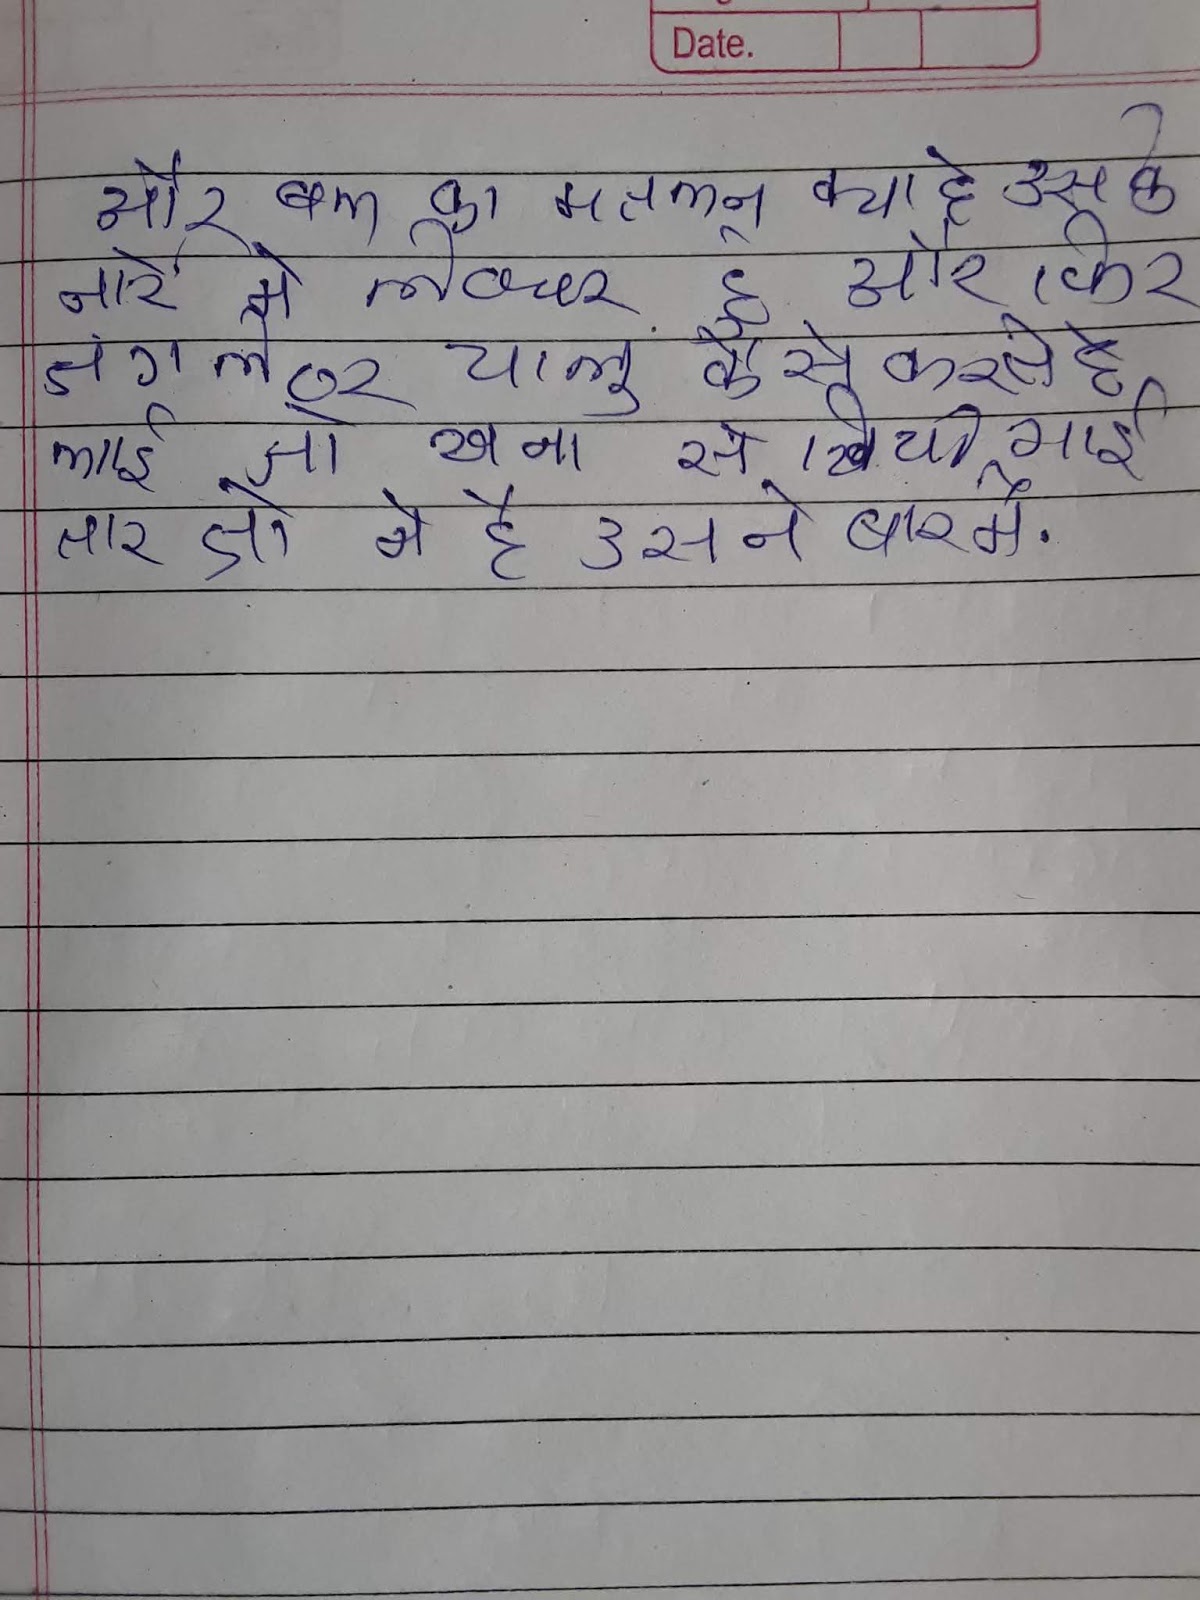 Date.
और बल का मतलब क्या है उसके
बारे मे लेक्चर है और फिर
जंग लेटर चालु कैसे करते है
लाई जो बना से
तार जो मे है उसने बारमें.